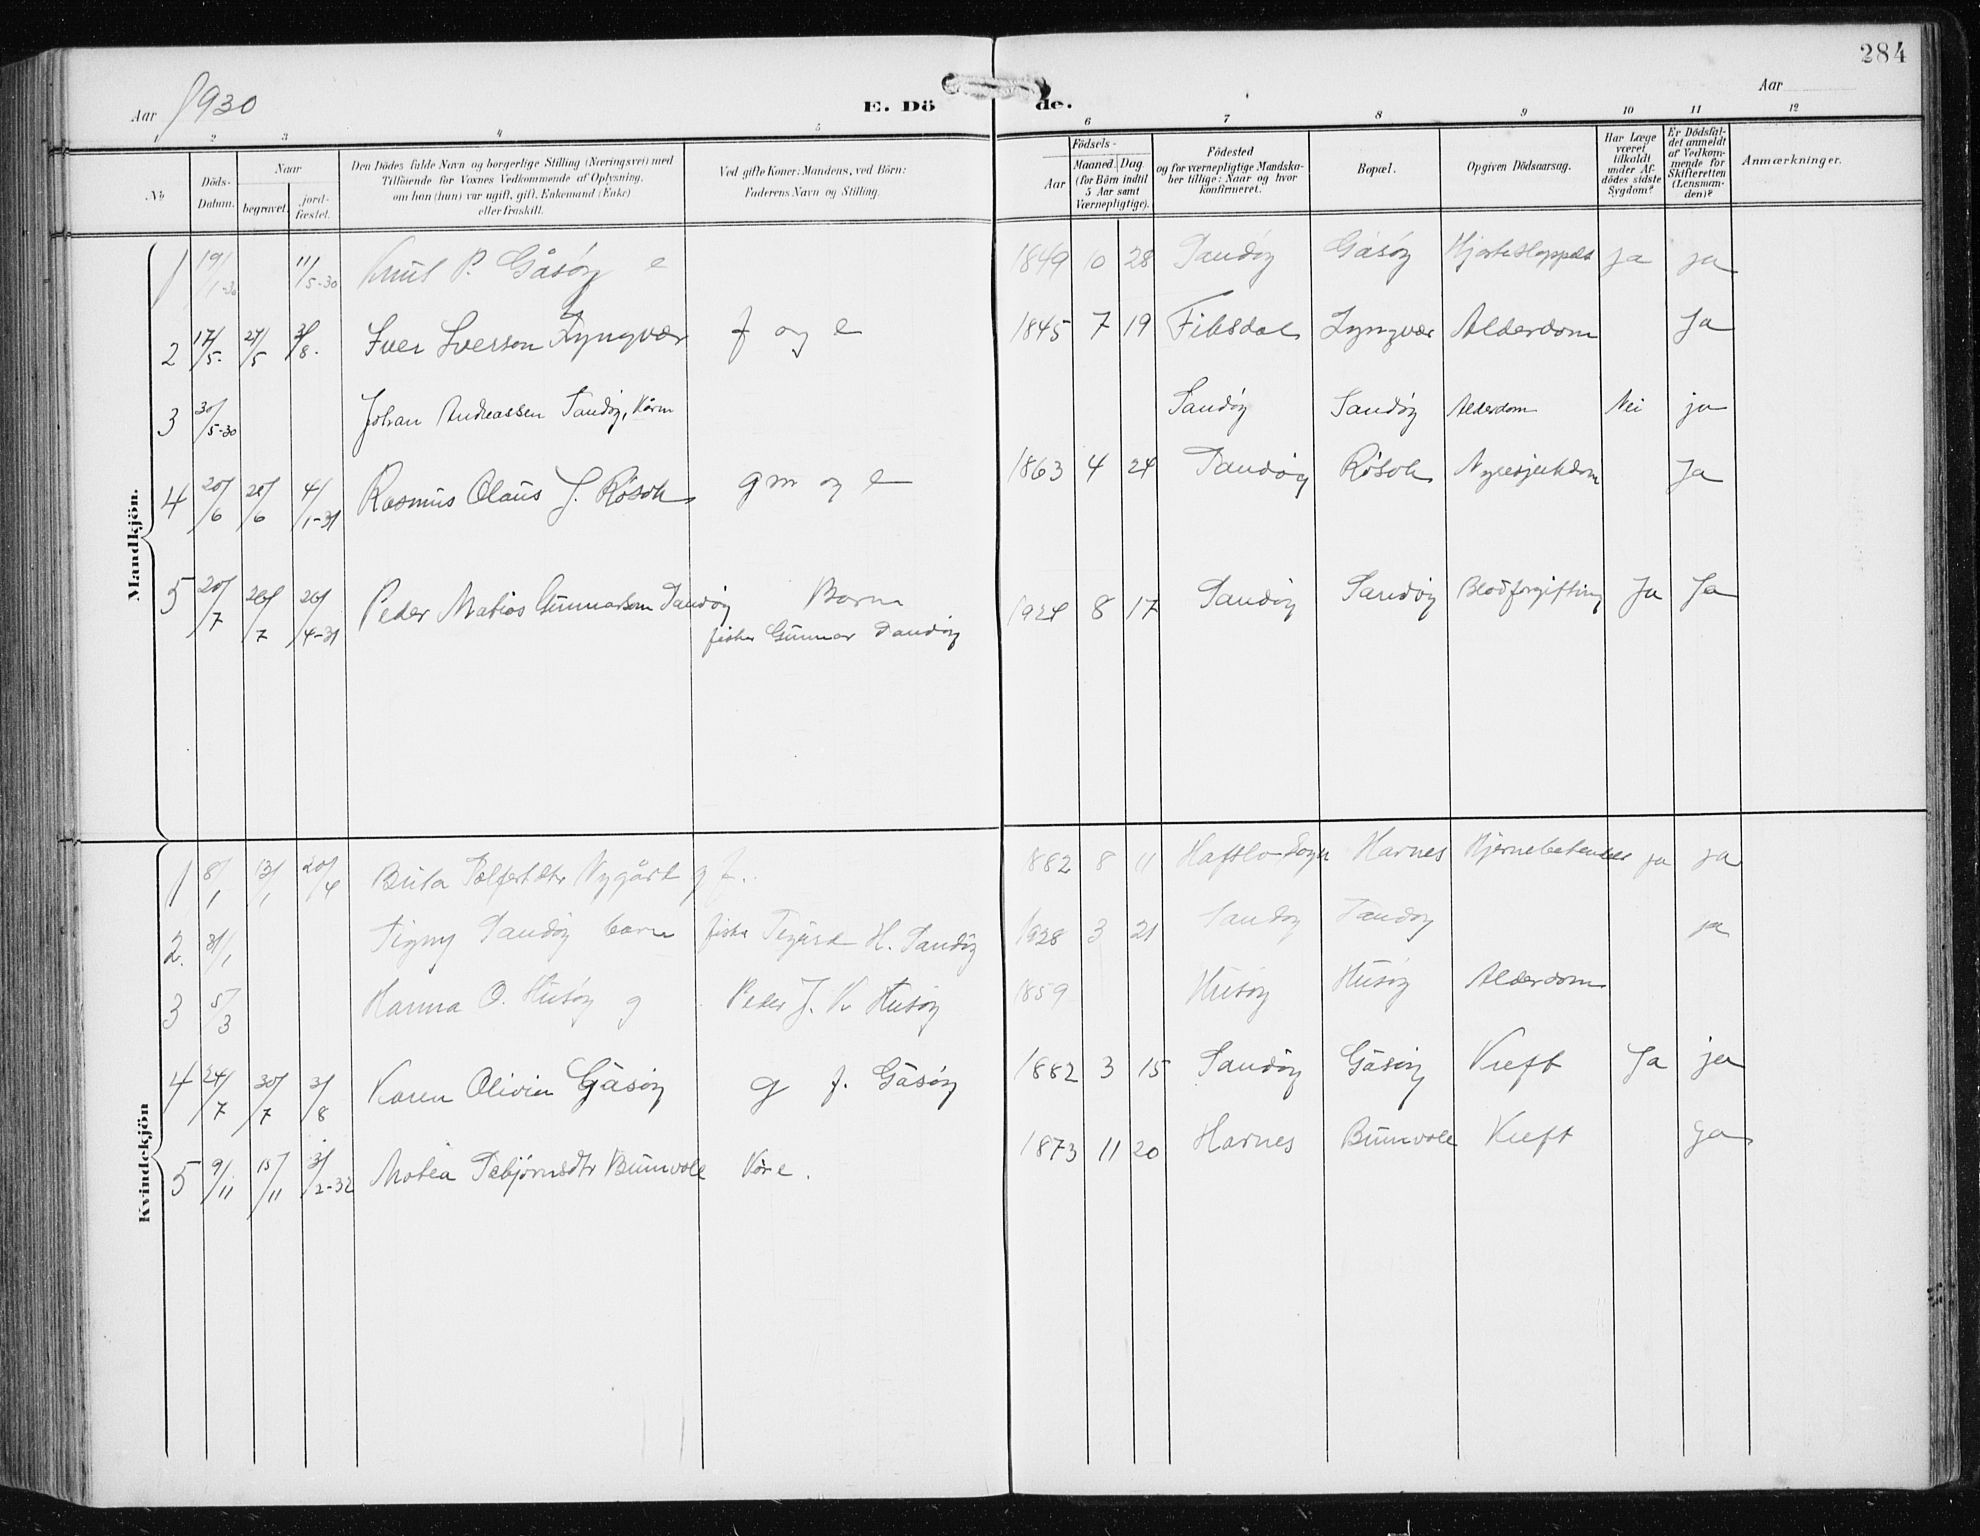 284
Aar 1930
E. Dö de.
Aar
1 2 3 4 5 6 7 8 9 10 11 12
No.
Döds-Datum.
Naar
begravet.
jord-fæstet.
Den Dödes fulde Navn og borgerlige Stilling (Næringsvei) med
Tilföiende for Voxnes Vedkommende af Oplysning,
om han (hun) var ugift, gift, Enkemand (Enke)
eller fraskilt.
Ved gifte Koner: Mandens, ved Börn:
Faderens Navn og Stilling.
Födsels-
Aar
Maaned. Dag.
(for Börn indtil
5 Aar samt
Værnepligtige).
Födested
og for værnepligtige Mandska-
ber tillige: Naar og hvor
konfirmeret.
Bopæl.
Opgiven Dödsaarsag.
Har Læge
været
tilkaldt
under Af-
dödes sidste
Sygdom?
Er Dödsfal-
det anmeldt
af Vedkom-
mende for
Skifteretten
(Lensman-
den)?
Anmærkninger.
Mandkjön.
1 19/1-30 11/5-30 Knut P. Gåsöy e 1849 10 28 Sandöy Gåsöy Hjerteslag ja ja
2 17/5. 24/5 3/8. Iver Iversson Lyngvær f og e 1845 7 19 Lyngvær Alderdom Ja
3 30/5-30 Johan Andreassen Sandöy, Sandöy Sandöy Alderdom Nei ja
4 20/6 28/6 4/1-31 Rasmus Olaus J. Røsok gm og e 1863 4 24 Sandöy Røsok Nyresjukdom Ja
5 20/7 26/7 26/4-31 Peder Matias Gunnarson Sandöy Barn 1924 8 17 Sandöy Sandöy Blodforgifting Ja Ja
fisker Gunnar Sandöy
Kvindekjön
1 8/1 13/1 20/4 Brita Nygård g f. 1882 8 11 Hafslo Sogn Harnes ja ja
2. 31/1 Signy Sandöy barn fisker Sigurd H. Sandöy 1928 3 21 Sandöy Sandöy ja
3 5/3 Hanna O. Husöy g Peder J. K Husöy 1859 Husöy Husöy Alderdom
4 24/7 30/7 3/8 Karen Olivia Gåsöy g f. Gåsöy 1882 3 15 Sandöy Gåsöy Kreft Ja ja
5 9/11 15/11 3/2-32 Matea Bumvole 1873 11 20 Harnes Bumvole Kreft ja